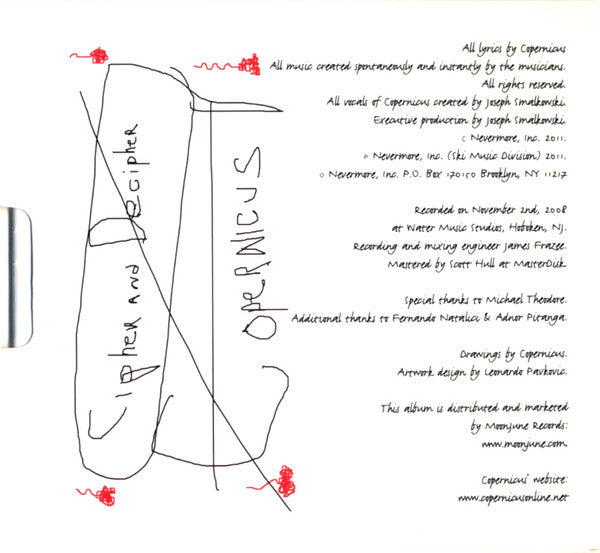 Cipher and Decipher
Copernicus
All lyrics by Copernicus
All music created spontaneously and instantly by the musicians.
All rights reserved.
All vocals of Copernicus created by Joseph Smalkowski.
Executive production by Joseph Smalkowski.
© Nevermore, Inc. 2011.
℗ Nevermore, Inc. (Ski Music Division) 2011.
© Nevermore, Inc. P.O. Box 170150 Brooklyn, NY 11217
Recorded on November 2nd, 2008
at Water Music Studios, Hoboken, NJ.
Recording and mixing engineer James Frazee.
Mastered by Scott Hull at MasterDisk.
Special thanks to Michael Theodore.
Additional thanks to Fernando Natalici & Adnor Pitanga.
Drawings by Copernicus.
Artwork design by Leonardo Pavkovic.
This album is distributed and marketed
by Moonjune Records:
www.moonjune.com.
Copernicus' website:
www.copernicusonline.net